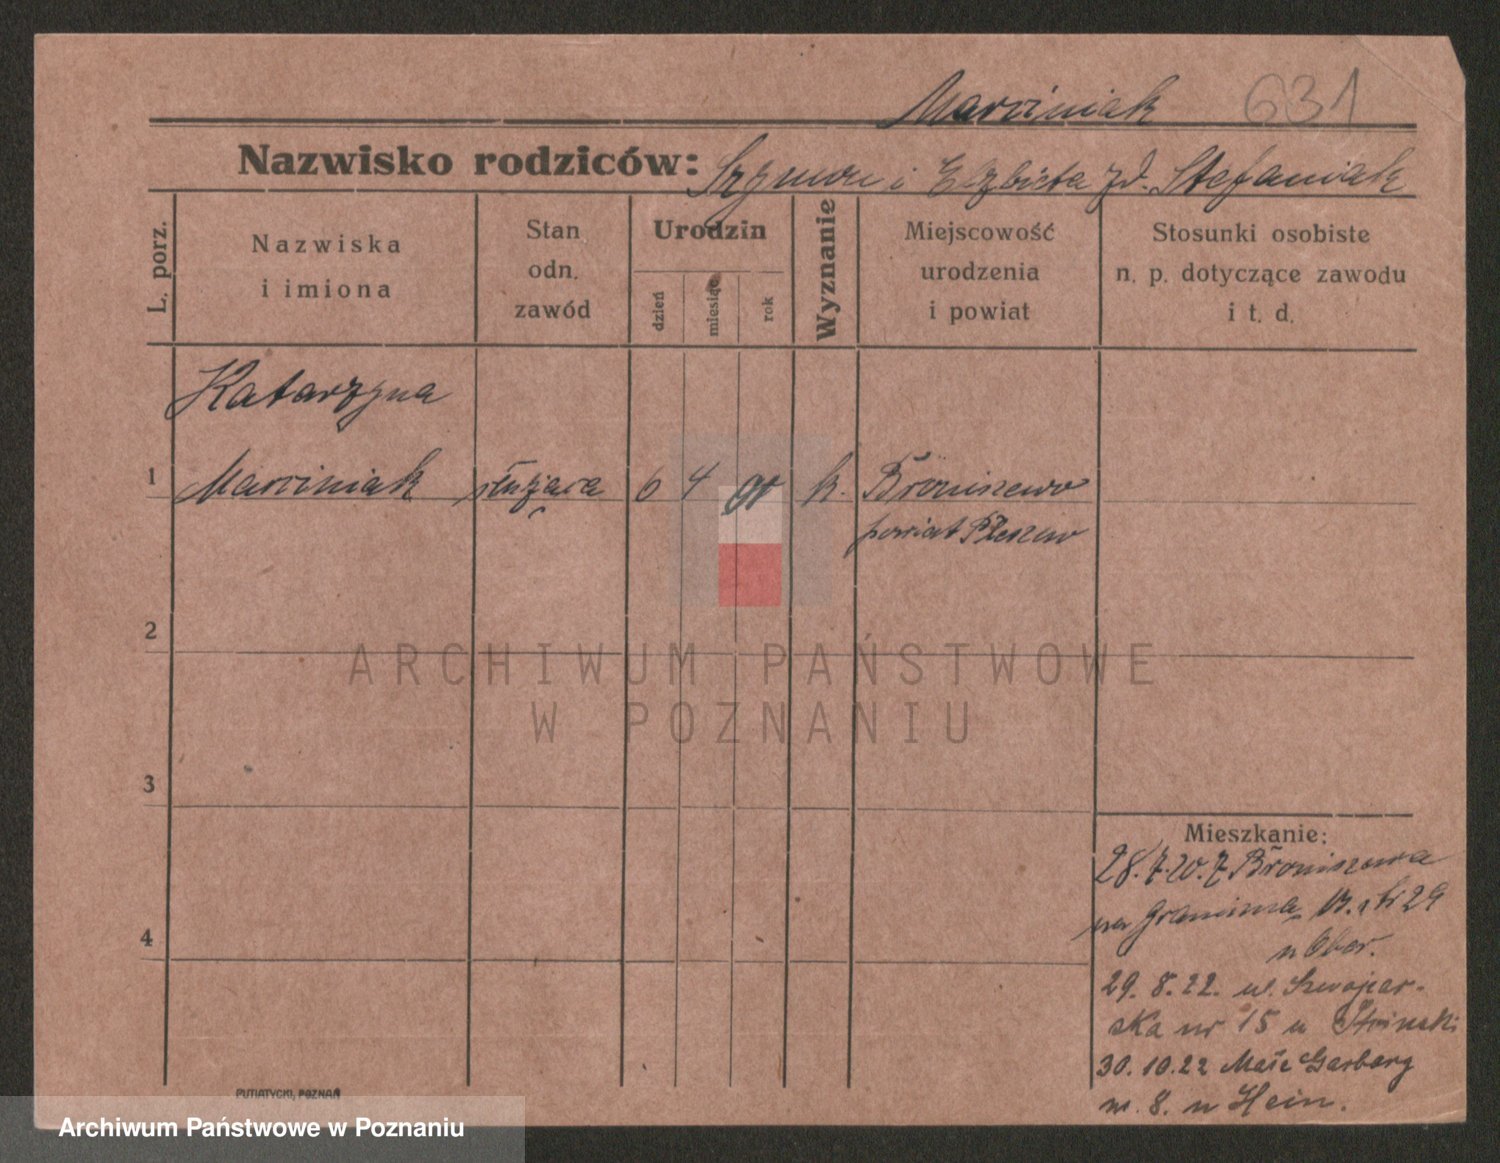 Marciniak 631
Nazwisko rodziców: Szymon i Elżbieta zd. Stefaniak
L. porz.
Nazwiska
i imiona
Stan
odn.
zawód
Urodzin
dzień
miesiąc
rok
Wyznanie
Miejscowość
urodzenia
i powiat
Stosunki osobiste
n. p. dotyczące zawodu
i t. d.
Katarzyna
1 Marciniak służąca 6 4 k. Broniszewo
powiat Pleszew
2
ARCHIWUM PAŃSTWOWE
W POZNANIU
3
Mieszkanie:
28. 7. 20. z Broniszewa
29
u
29. 8. 22. ul. Szwajcar-
ska nr 15 u
4
30. 10. 22 Małe Garbary
nr. 8. u Hein.
PUTIATYCKI, POZNAŃ
Archiwum Państwowe w Poznaniu